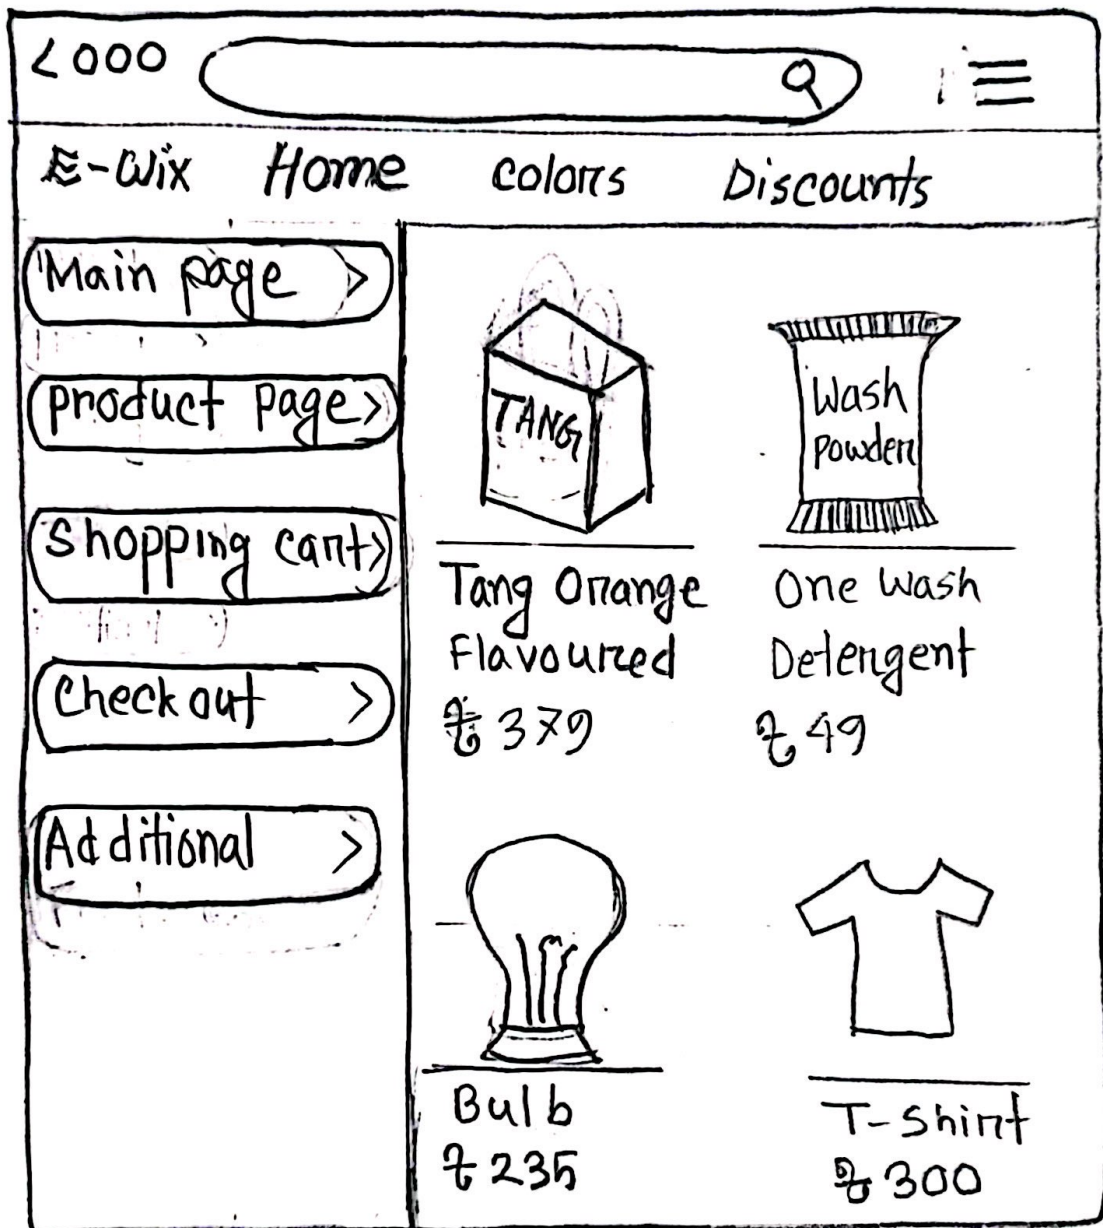 < 000
E-Wix Home colors Discounts
Main page >
product page >
Shopping cart >
Checkout >
Additional >
TANG
Wash
Powder
Tang Orange
Flavoured
৳ 379
One Wash
Detergent
৳ 49
Bulb
৳ 235
T-Shirt
৳ 300